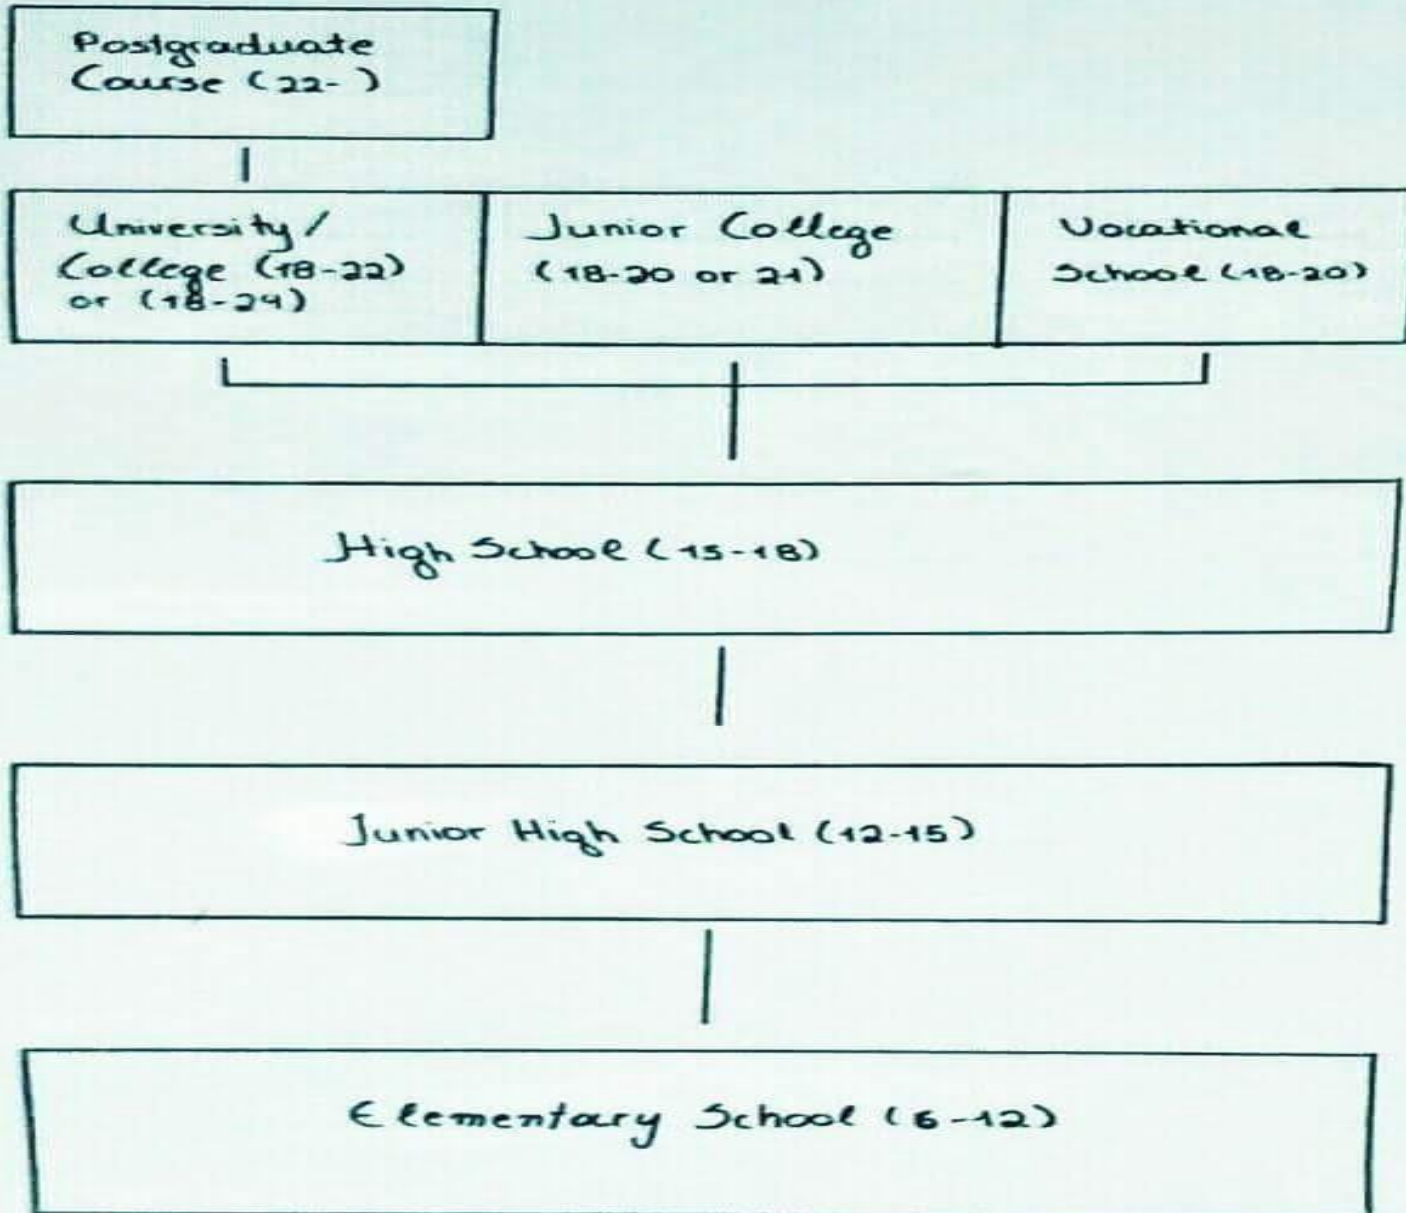 Postgraduate
Course (22- )
University/
College (18-22)
or (18-24)
Junior College
(18-20 or 21)
Vocational
School (18-20)
High School (15-18)
Junior High School (12-15)
Elementary School (6-12)